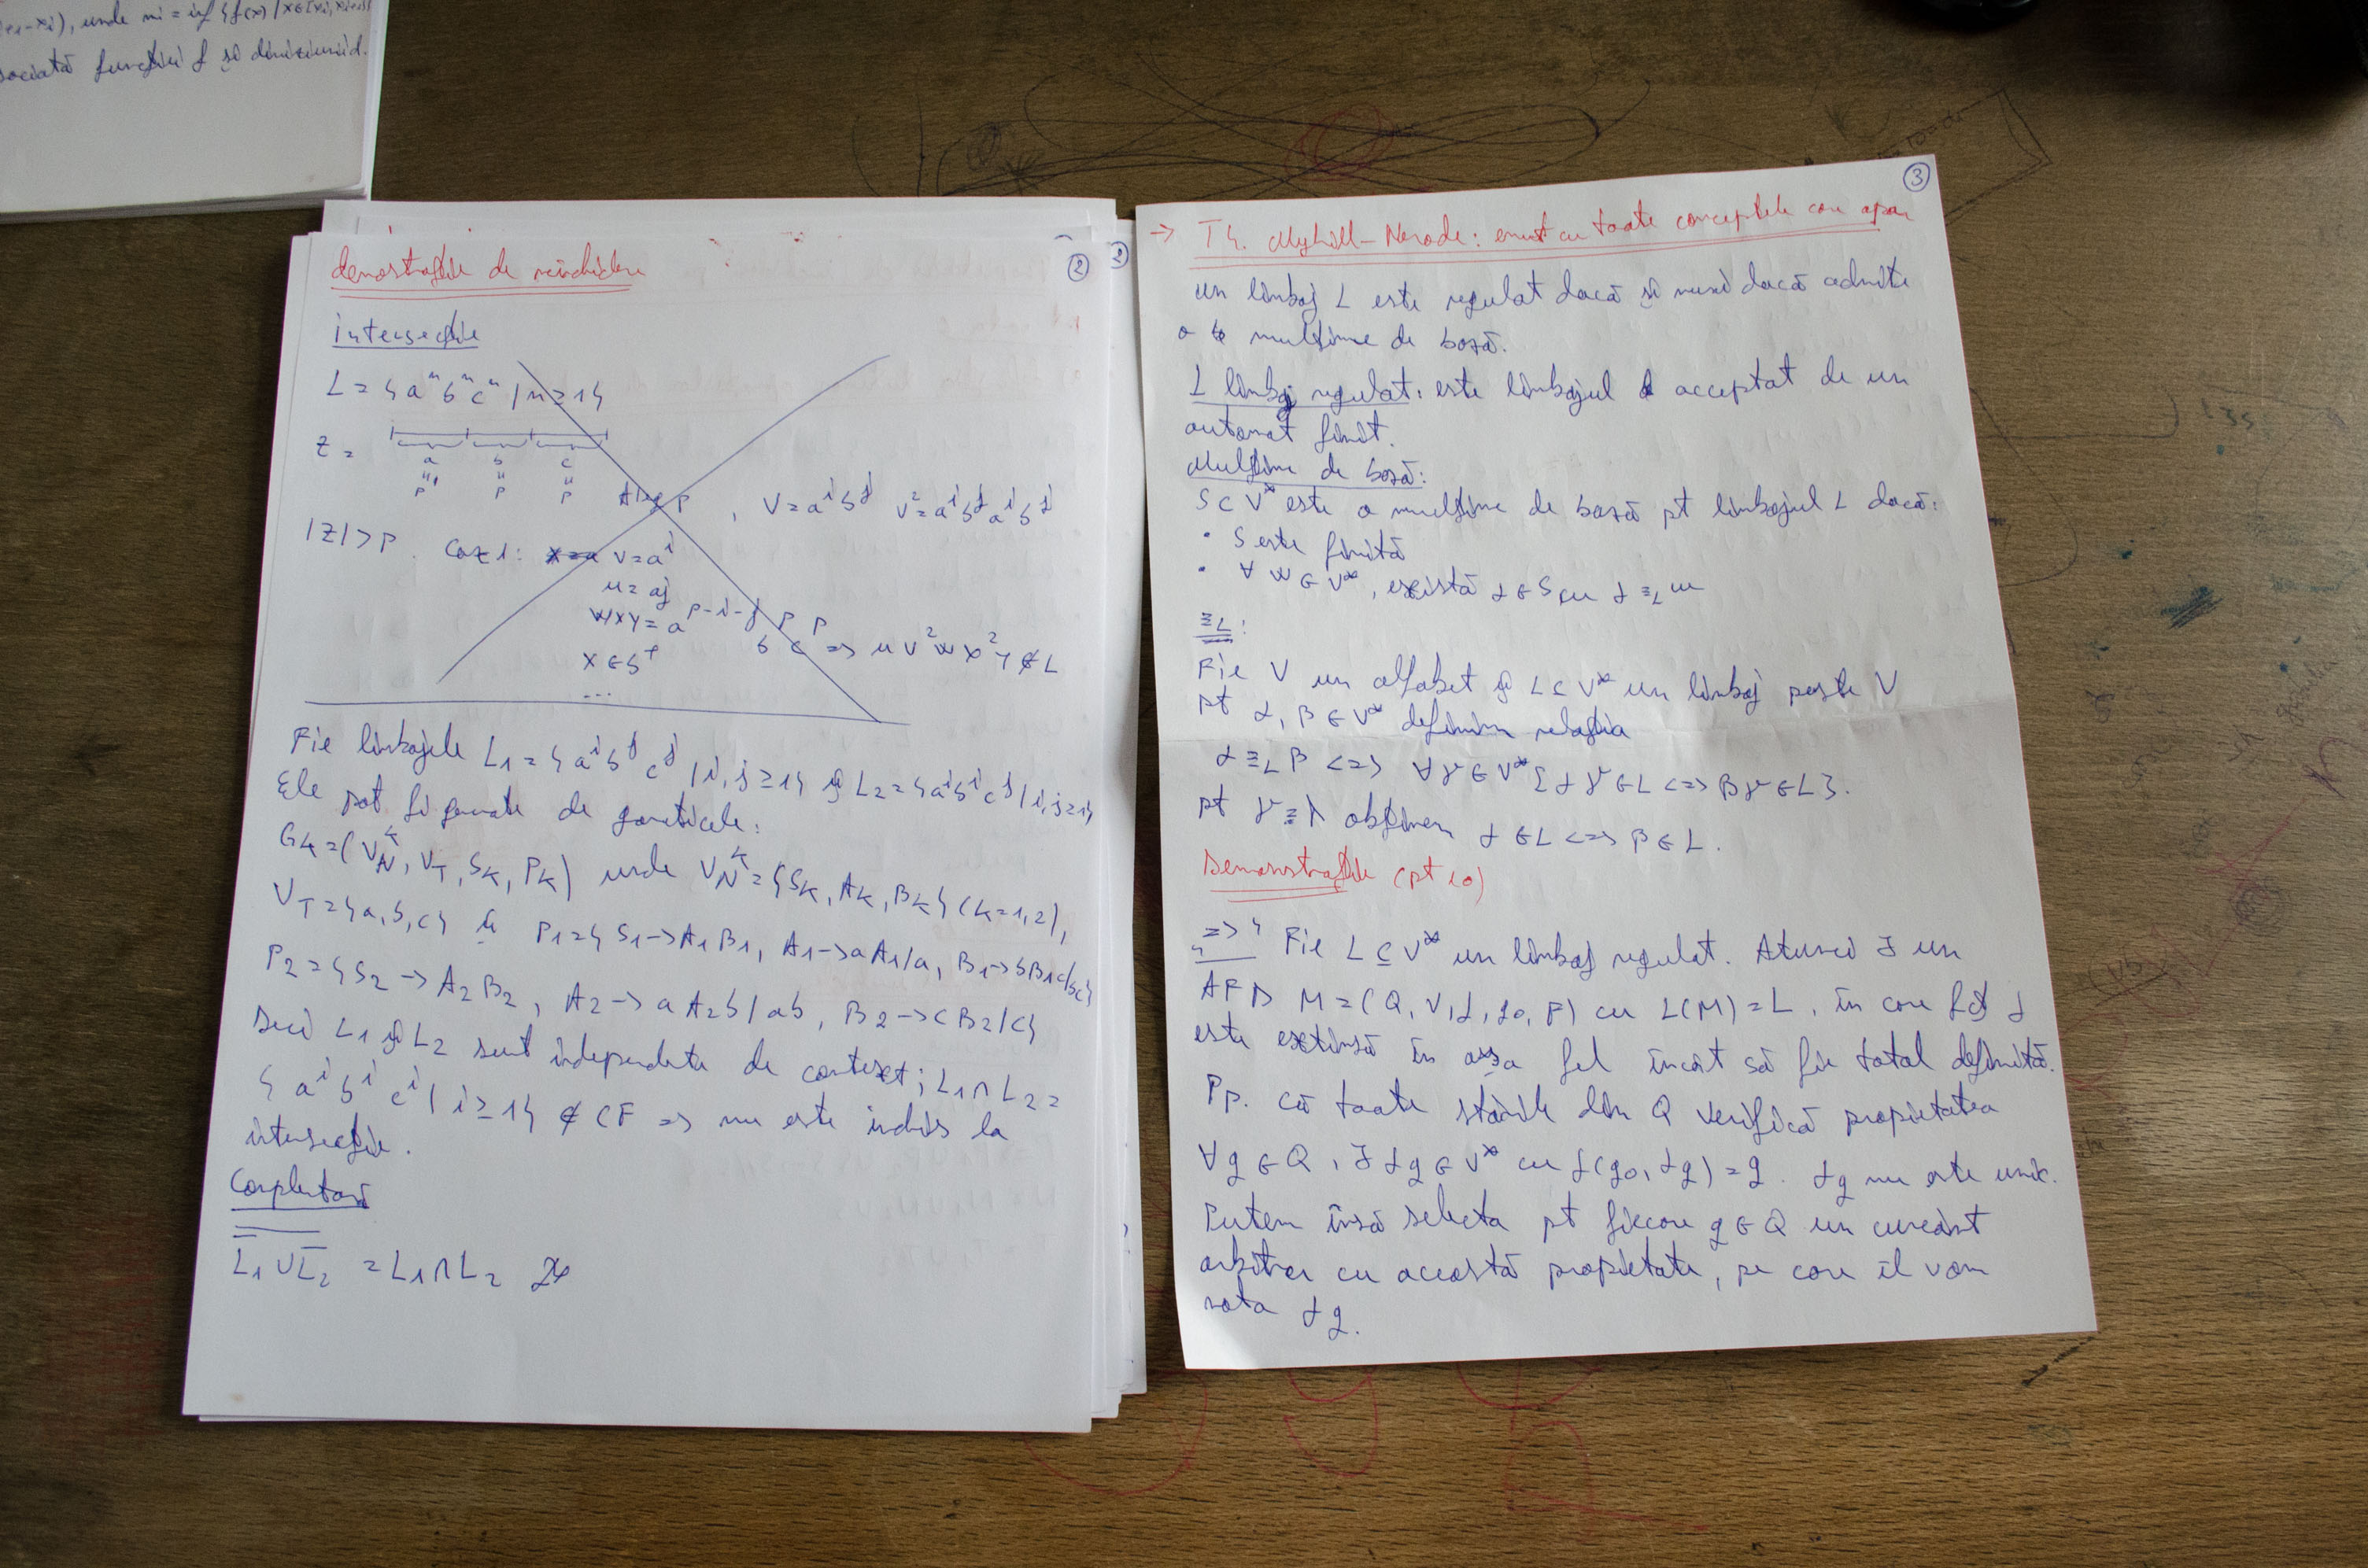 x∈[xi, xi+1]
xi+1-xi), unde mi = inf {f(x) / x∈[xi, xi+1]}
sociată funcției f și diviziunii d.
demonstrațiile de neînchidere
②
2
intersecție
L = {a^n b^n c^n / n ≥ 1}
z =
a b c
p p p
Aleg p , v = a^i b^j v^2 = a^i b^j a^i b^j
|z| > p . Caz 1: v = a^i
u = aj
wxy = a^p-i-j b^p c^p => u v^2 w x^2 y ∉ L
x ∈ b^+
...
Fie limbajele L1 = {a^i b^j c^j / i, j ≥ 1} și L2 = {a^i b^i c^j / i, j ≥ 1}
Ele pot fi generate de gramaticele:
Gk = (V_N^k, V_T, Sk, Pk) unde V_N^k = {Sk, Ak, Bk} (k = 1, 2),
V_T = {a, b, c} și P1 = {S1 -> A1 B1, A1 -> a A1 / a, B1 -> b B1 c / bc}
P2 = {S2 -> A2 B2, A2 -> a A2 b / ab, B2 -> c B2 / c}
Deci L1 și L2 sunt independente de context; L1 ∩ L2 =
{a^i b^i c^i / i ≥ 1} ∉ CF => nu este închis la
intersecție.
Complementară
L1 ∪ L2 = L1 ∩ L2
③
→ T4. Myhill-Nerode: enunt cu toate conceptele care apar
un limbaj L este regulat dacă și numai dacă admite
o mulțime de bază.
L limbaj regulat: este limbajul acceptat de un
automat finit.
Mulțime de bază:
S ⊂ V* este o mulțime de bază pt limbajul L dacă:
• S este finită
• ∀ w ∈ V*, există α ∈ S cu α ≡L w
≡L:
Fie V un alfabet și L ⊂ V* un limbaj peste V
pt α, β ∈ V* definim relația
α ≡L β <=> ∀ γ ∈ V* [αγ ∈ L <=> βγ ∈ L].
pt γ = λ obținem α ∈ L <=> β ∈ L.
Demonstrațiile (pt 10)
"=>" Fie L ⊆ V* un limbaj regulat. Atunci ∃ un
AFD M = (Q, V, δ, q0, F) cu L(M) = L, în care fct δ
este extinsă în așa fel încât să fie total definită.
Pp. că toate stările din Q verifică proprietatea
∀ q ∈ Q, ∃ αq ∈ V* cu δ(q0, αq) = q. αq nu este unic.
Putem însă selecta pt fiecare q ∈ Q un cuvânt
arbitrar cu această proprietate, pe care îl vom
nota αq.